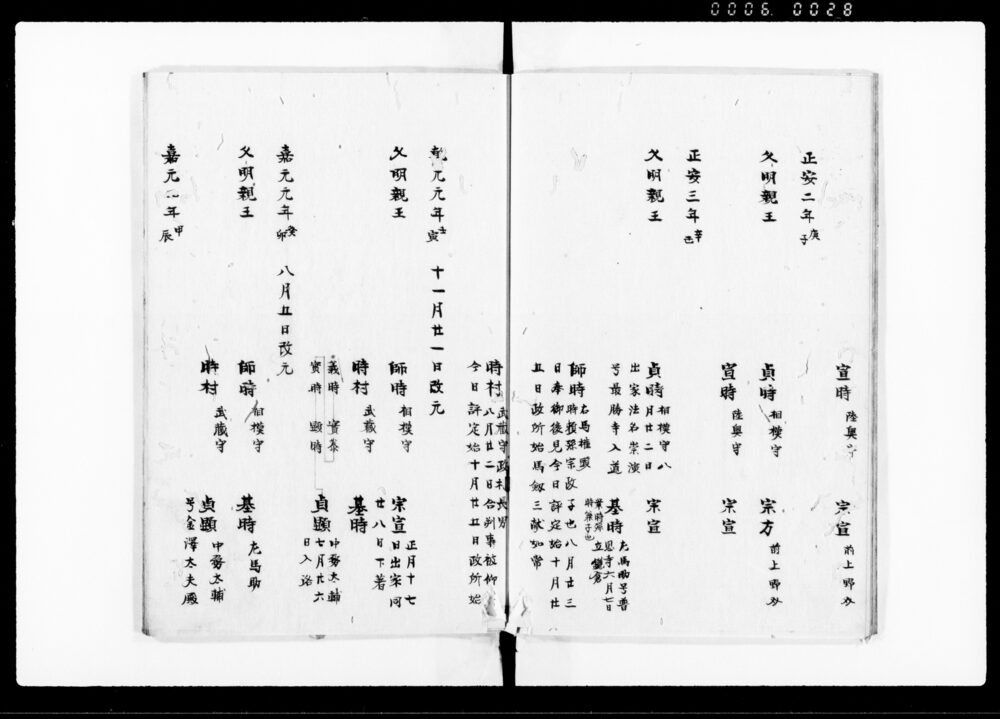 0006 0028
宣時 陸奥守 宗宣 前上野介
正安二年 庚子
久明親王 貞時 相模守 宗方 前上野介
宣時 陸奥守 宗宣
正安三年 辛丑
久明親王 貞時 相模守 八月廿二日出家法名崇演号最勝寺入道 宗宣
基時 左馬助号普恩寺六月七日立鎌倉
業時孫 時兼子也
師時 右馬権頭 時頼孫宗政子也八月廿三日奉御後見今日評定始十月廿五日政所始馬剱三献如常
時村 武蔵守政村長男 八月廿二日合判事被仰今日評定始十月廿五日政所始
乾元元年 壬寅 十一月廿一日改元
久明親王 師時 相模守 宗宣 正月十七日出宗同廿八日下著
時村 武蔵守 基時
義時 実泰 貞顕 中務大輔 七月廿六日入洛
実時 顕時
嘉元元年 癸卯 八月五日改元
久明親王 師時 相模守 基時 左馬助
時村 武蔵守 貞顕 中務大輔 号金澤大夫殿
嘉元二年 甲辰